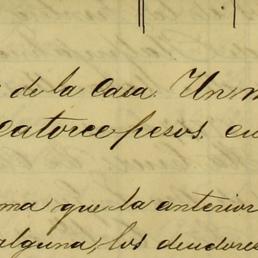 de la Casa. Un
catorce pesos. en
ma que la anterior
alguna, los deudores